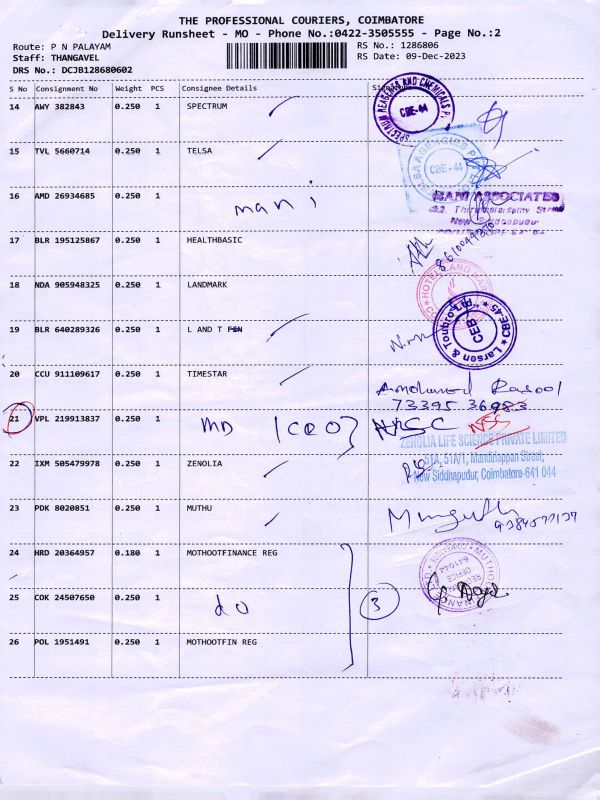 THE PROFESSIONAL COURIERS, COIMBATORE
Delivery Runsheet - MO - Phone No.:0422-3505555 - Page No.:2
Route: P N PALAYAM
RS No.: 1286806
Staff: THANGAVEL
RS Date: 09-Dec-2023
DRS No.: DCJB128680602
S No Consignment No Weight PCS Consignee Details Signature
14 AWY 382843 0.250 1 SPECTRUM
SPECTRUM REAGENTS AND CHEMICALS P
CBE-44
15 TVL 5660714 0.250 1 TELSA
CBE-44
16 AMD 26934685 0.250 1
mani
MANI ASSOCIATES
New Siddhapudur
17 BLR 195125867 0.250 1 HEALTHBASIC
18 NDA 905948325 0.250 1 LANDMARK
19 BLR 640289326 0.250 1 L AND T FIN
Larsen & Toubro Ltd. CBE-45
CEB
20 CCU 911109617 0.250 1 TIMESTAR
73395 36983
21 VPL 219913837 0.250 1
MD (CEO)
NSC
NSS
ZENOLIA LIFE SCIENCE PRIVATE LIMITED
51A, 51A/1, Mandiriappan Street,
New Siddhapudur, Coimbatore-641 044
22 IXM 505479978 0.250 1 ZENOLIA
23 PDK 8020851 0.250 1 MUTHU
24 HRD 20364957 0.180 1 MOTHOOTFINANCE REG
25 COK 24507650 0.250 1
do
3
26 POL 1951491 0.250 1 MOTHOOTFIN REG